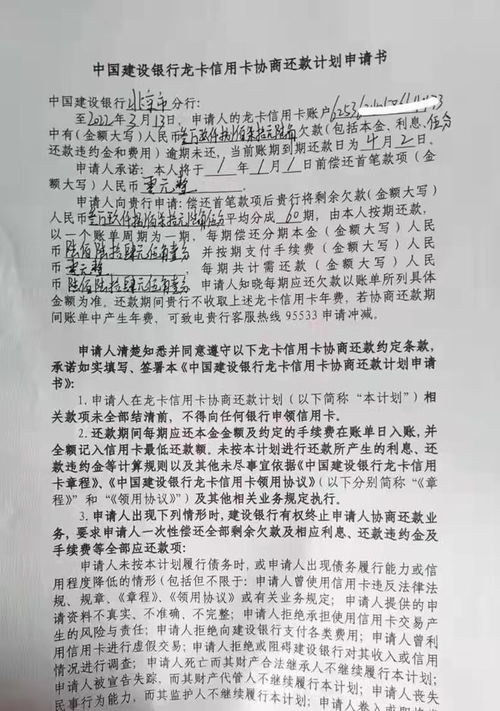 中国建设银行龙卡信用卡协商还款计划申请书
中国建设银行北京市分行:
至2022年3月13日,申请人的龙卡信用卡账户6253
中有(金额大写)人民币 欠款(包括本金、利息、
还款违约金和费用)逾期未还,当前账期到期还款日为4月2日。
申请人承诺:本人将于1年1月1日前偿还首笔款项(金
额大写)人民币零元整。
申请人向贵行申请:偿还首笔款项后贵行将剩余欠款(金额大写)
人民币 平均分成60期,由本人按期还款,
以一个账单周期为一期,每期偿还分期本金(金额大写)人民
币陆佰陆拾肆元伍角壹分 并按期支付手续费(金额大写)人民
币零元整,每期共计需还款(金额大写)人民
币陆佰陆拾肆元伍角壹分 申请人知晓每期应还欠款以账单所列具体
金额为准。还款期间贵行不收取上述龙卡信用卡年费,若协商还款期
间账单中产生年费,可致电贵行客服热线95533申请冲减。
申请人清楚知悉并同意遵守以下龙卡信用卡协商还款约定条款,
承诺如实填写、签署本《中国建设银行龙卡信用卡协商还款计划申请
书》:
1.申请人在龙卡信用卡协商还款计划(以下简称“本计划”)相
关款项未全部结清前,不得向任何银行申领信用卡。
2.还款期间每期应还本金金额及约定的手续费在账单日入账,并
全额记入信用卡最低还款额。未按本计划进行还款所产生的利息、还
款违约金等计算规则以及其他未尽事宜依据《中国建设银行龙卡信用
卡章程》、《中国建设银行龙卡信用卡领用协议》(以下分别简称“《章
程》”和“《领用协议》”)及其他相关业务规定执行。
3.申请人出现下列情形时,建设银行有权终止申请人协商还款业
务,要求申请人一次性偿还全部剩余欠款及相应利息、还款违约金及
手续费等全部应还款项:
申请人未按本计划履行债务时,或申请人出现债务履行能力或信
用程度降低的情形(包括但不限于:申请人曾使用信用卡违反法律法
规、规章、《章程》、《领用协议》或有关业务规定;申请人提供的申
请资料不真实、不准确、不完整;申请人拒绝承担使用信用卡交易产
生的风险与责任;申请人拒绝向建设银行支付各类费用;申请人曾利
用信用卡进行虚假交易;申请人拒绝或阻碍建设银行对其收入或信用
情况进行调查;申请人死亡而其财产合法继承人不继续履行本计划;
申请人被宣告失踪,而其财产代管人不继续履行本计划;申请人丧失
民事行为能力,而其监护人不继续履行本计划;申请人卷入或即将